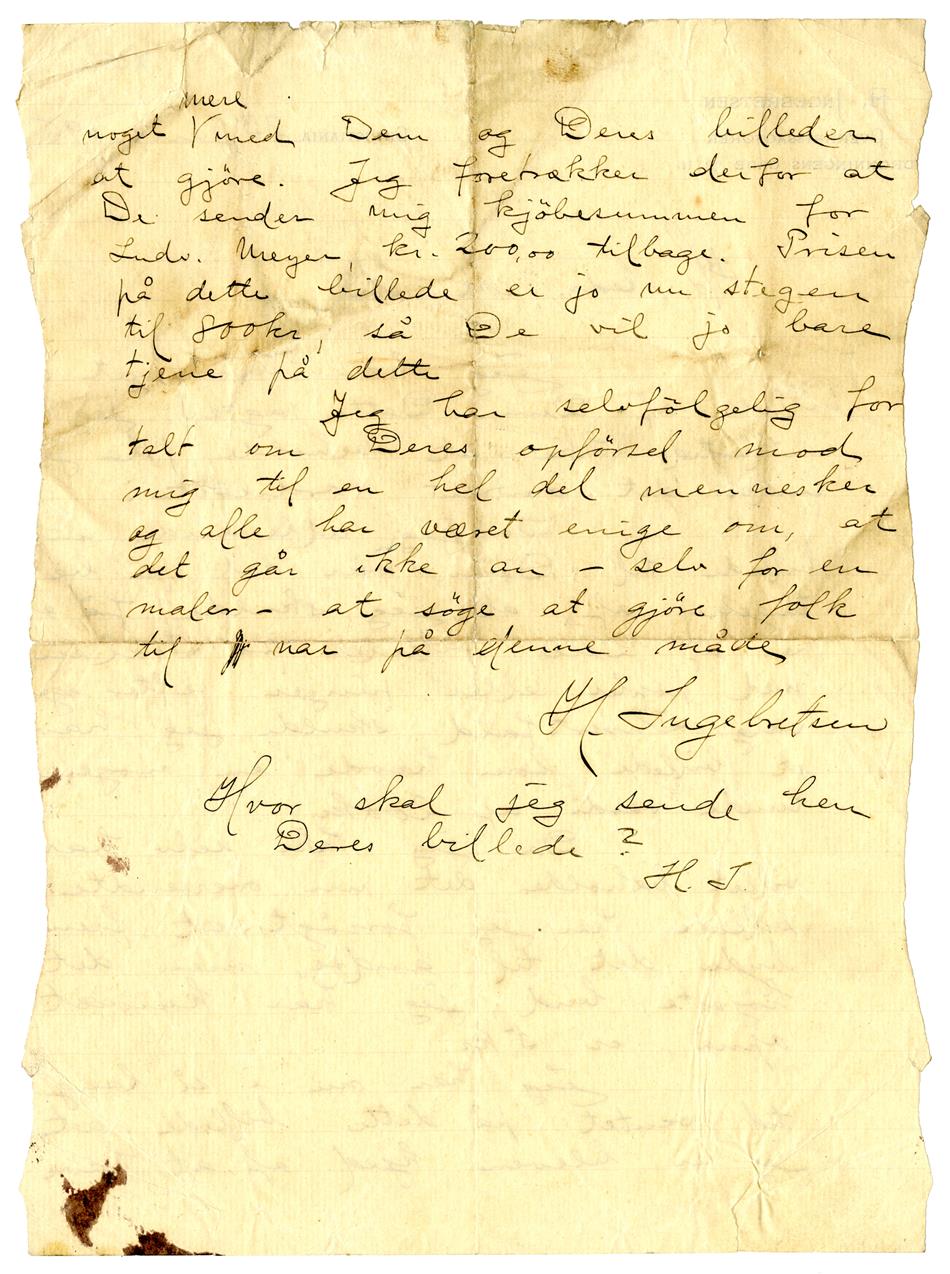 mere
noget √ med Dem og Deres billeder
at gjöre. Jeg foretrækker derfor at
De sender mig kjöbesummen for
Ludv. Meyer, kr. 200,00 tilbage. Prisen
på dette billede er jo nu stegen
til 800kr, så De vil jo bare
tjene på dette
Jeg har selvfölgelig for
talt om Deres opförsel mod
mig til en hel del mennesker
og alle har været enige om, at
det går ikke an – selv for en
maler – at söge at gjöre folk
til nar på denne måde
H. Ingebretsen
Hvor skal jeg sende hen
Deres billede?
H. I.